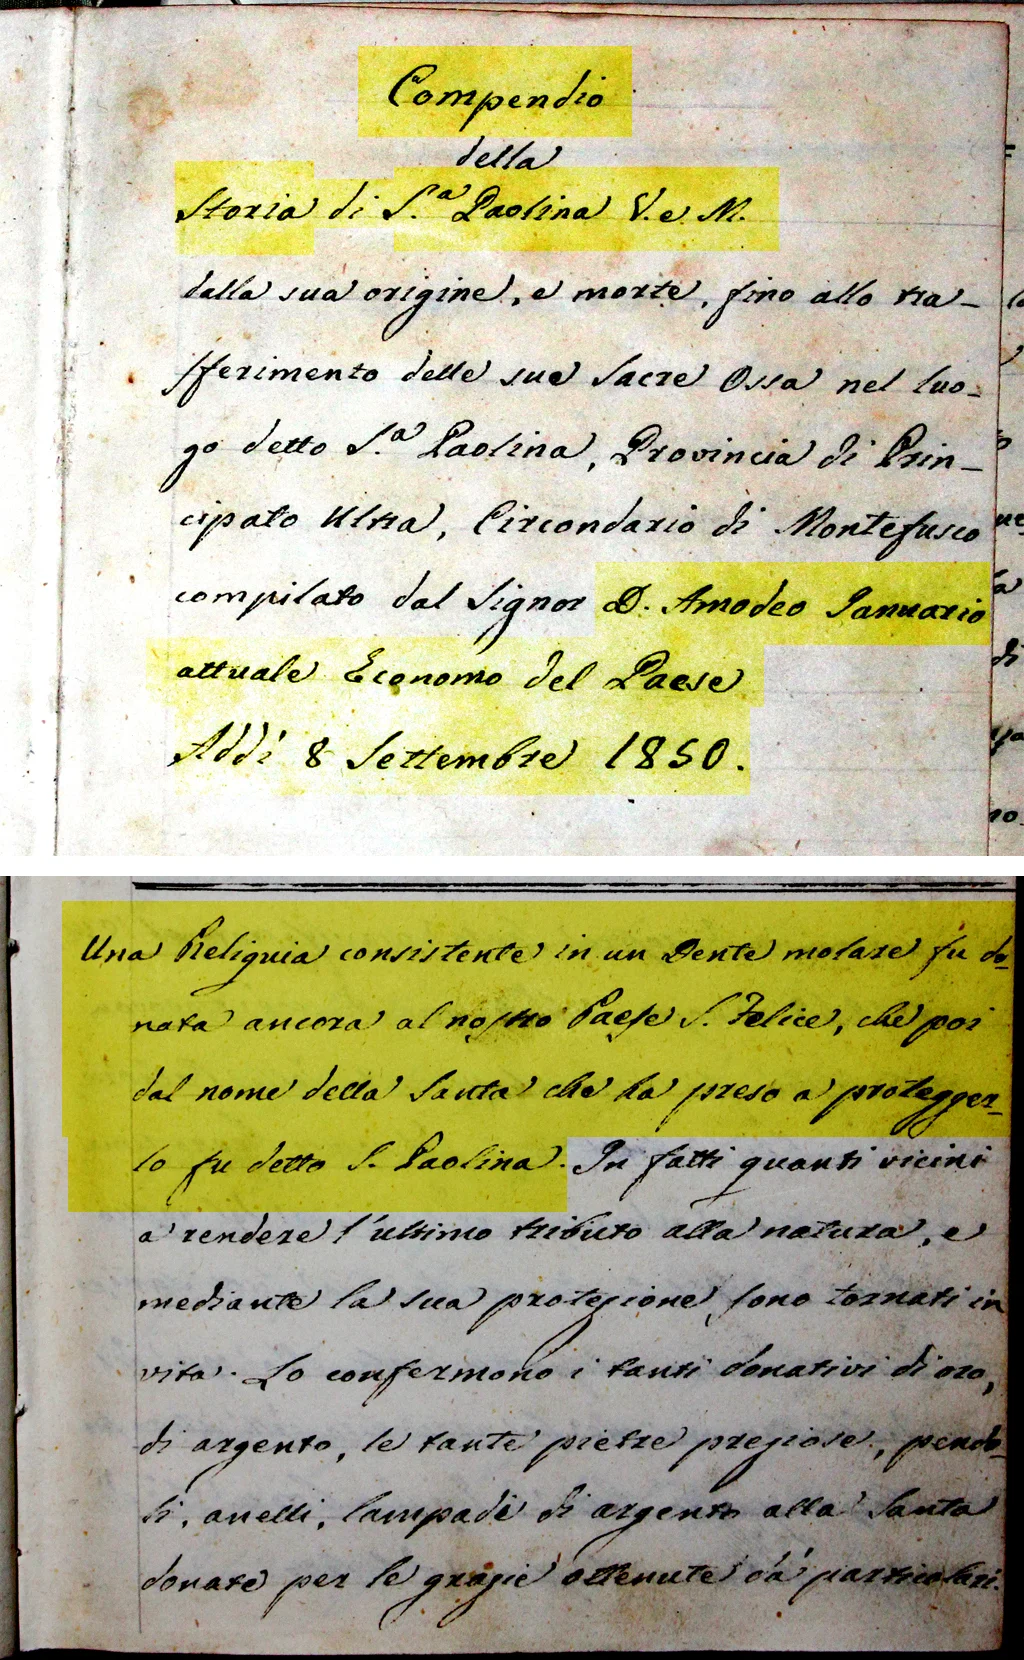 Compendio
della
Storia di S.a Paolina V. e M.
dalla sua origine, e morte, fino allo tra-
sferimento delle sue Sacre Ossa nel luo-
go detto S.a Paolina, Provincia di Prin-
cipato Ultra, Circondario di Montefusco
compilato dal Signor D. Amodeo Januario
attuale Economo del Paese
Addì 8 Settembre 1850.
Una Reliquia consistente in un Dente molare fu do-
nata ancora al nostro Paese S. Felice, che poi
dal nome della Santa che ha preso a protegger-
lo fu detto S. Paolina. In fatti quanti vicini
a rendere l'ultimo tributo alla natura, e
mediante la sua protezione, sono tornati in
vita. Lo confermono i tanti donativi di oro,
di argento, le tante pietre preziose, pendo-
li, anelli, lampade di argento alla Santa
donate per le grazie ottenute da' particolari.